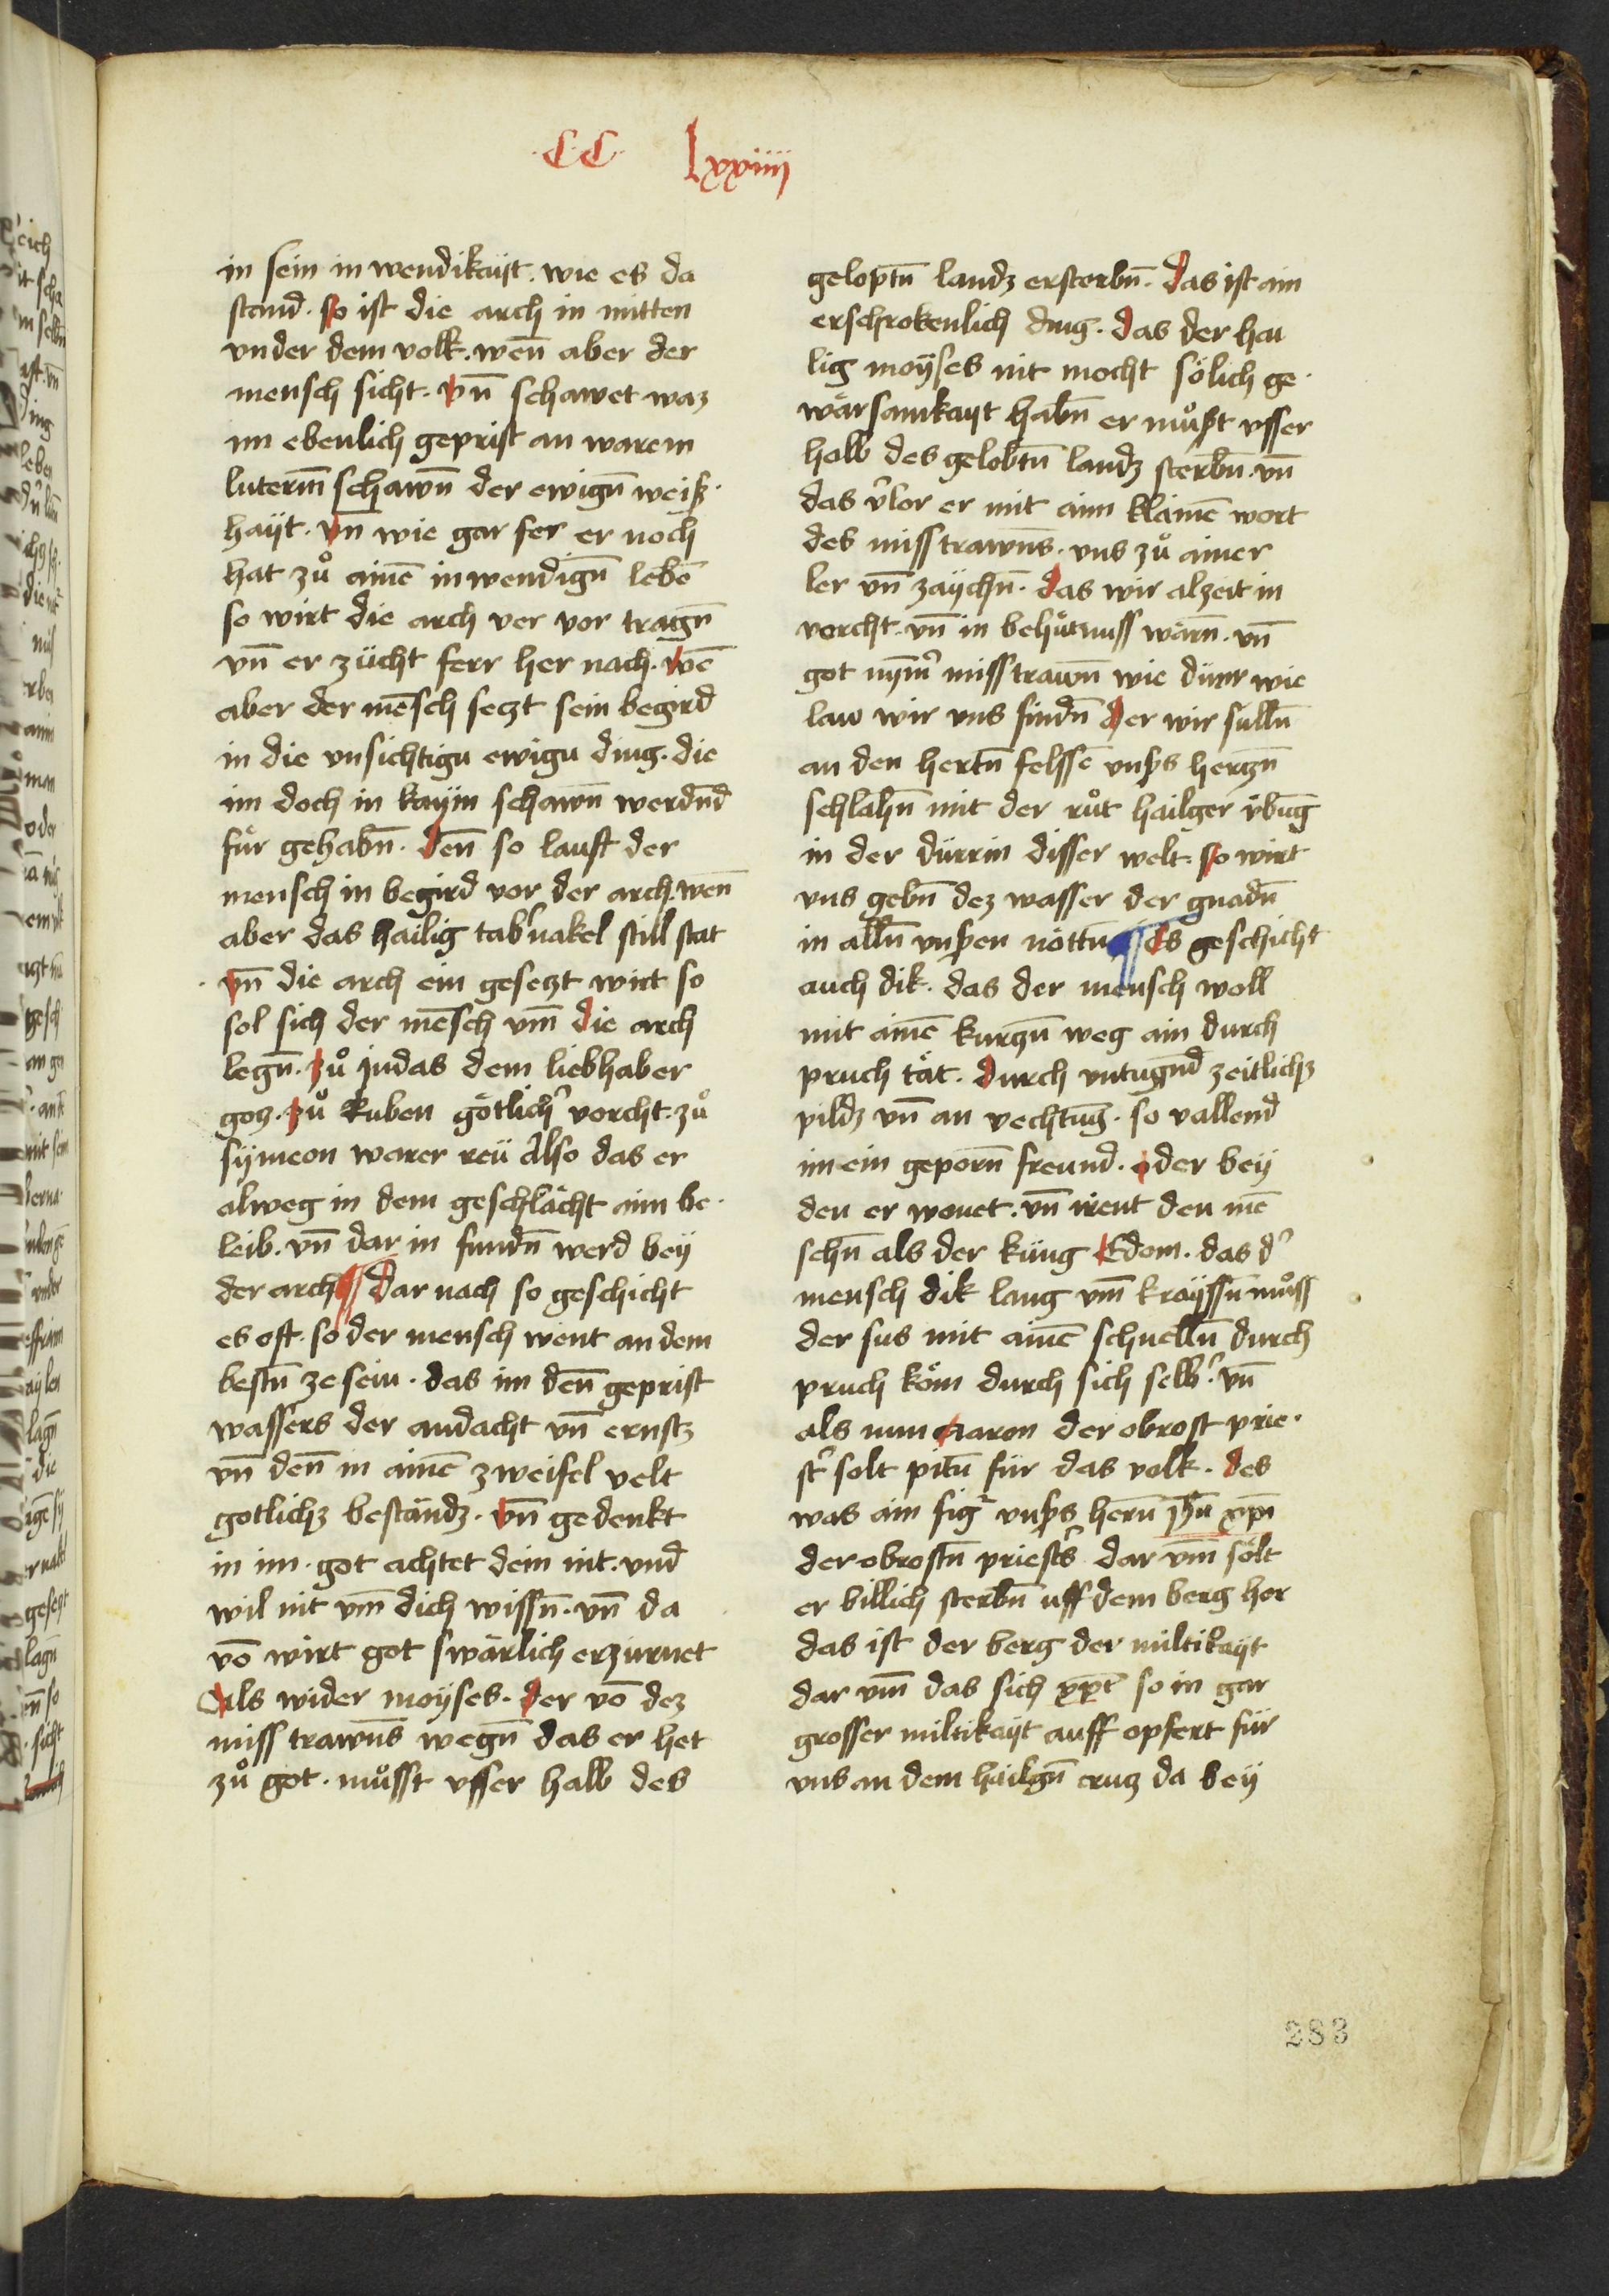 ·CC· Lxxiiij
in sein in wendikaÿt. wie es da
stand. so ist die arch in mitten
vnder dem volk. wen̄ aber der
mensch sicht. vn̄ schawet waz
im ebenlich geprist an warem
luterm̄ schawn̄ der ewign̄ weiß·
haÿt. vn̄ wie gar fer er noch
hat zuͦ ainē inwendign̄ lebē
so wirt die arch ver vor tragn̄
vn̄ er zücht ferr her nach. wē
aber der mēsch seczt sein begird
in die vnsichtigu ewigu ding. die
im doch in kaÿm schawn̄ werdnd̄
für gehabn̄. den̄ so lauft der
mensch in begird vor der arch. wen̄
aber das hailig tab̾nakel still stat
vn̄ die arch ein gesetzt wirt so
sol sich der mēsch vm̄ die arch
legn̄. zuͦ judas dem liebhaber
gotz. zuͦ Ruben götlich̾ vorcht. zuͦ
sÿmeon warer reü Also das er
alweg in dem geschlächt aim be·
leib. vn̄ dar in fundn̄ werd beÿ
der arch ¶ Dar nach so geschicht
es oft. so der mensch went an dem
bestn̄ ze sein. das im den̄ geprist
wassers der andacht vn̄ ernstz
vn̄ den̄ in ainē zweifel velt
gotlichz beständz. vn̄ gedenkt
in im. got achtet dein nit. vnd̄
wil nit vm̄ dich wissn̄. vn̄ da
vō wirt got swärlich erzürnet
Als wider moÿses. der vō dez
miss trawns̄ wegn̄ das er het
zuͦ got. muͦsst vsser halb des
geloptn̄ landz ersterbn̄. das ist ain
erschrokenlich ding. das der hai
lig moÿses nit mocht sölich ge·
wärsamkaÿt habn̄ er muͦst vsser
halb des gelobtn̄ landz sterbn̄. vn̄
das v̾lor er mit aim klainē wort
des miss trawns̄. vns zuͦ ainer
ler vn̄ zaÿchn̄. das wir alzeit in
vorcht. vn̄ in behütnuss wärn̄. vn̄
got nÿm̄̾ miss trawn̄ wie dürr wie
law wir vns findn̄ der wir sülln̄
an den hertn̄ felssē vnsers hertzn̄
schlahn̄ mit der ruͦt hailger v̈būg
in der dürrin disser welt. so wirt
vns gebn̄ dez wasser der gnadn̄
in alln̄ vnseren nöttn̄ ¶ Es geschicht
auch dik. das der mensch woll
mit ainē kurtzn̄ weg ain durch
pruch tät. durch vntugnd̄ zeitlichz
pildz vn̄ an vechtūg. so vallend
im ein geporn̄ freund. oder beÿ
den er wonet. vn̄ irent den mē
schn̄ als der küng Edom. das d̾
mensch dik lang vm̄ kraÿssn̄ muͦss
der sus mit ainē schnelln̄ durch
pruch köm durch sich selb̾. vn̄
als nun aaron der obrost prie·
st̾ solt pitn̄ für das volk. des
was ain fig̾ vnsers hern̄ jhū xpi
der obrostn̄ priest̾s dar vm̄ solt
er billich sterbn̄ uff dem berg hor
das ist der berg der miltikaÿt
dar vm̄ das sich xpc̄ so in gar
grosser miltikaÿt auff opfert für
vns an dem hailgn̄ crutz da beÿ
283